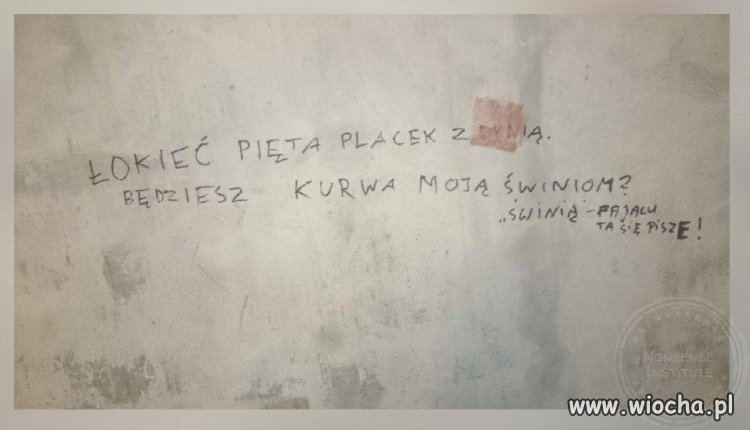 ŁOKIEĆ PIĘTA PLACEK Z DYNIĄ.
BĘDZIESZ KURWA MOJĄ ŚWINIOM?
„ŚWINIĄ" - PAJACU
TA SIĘ PISZE!
NONSENSE
INSTITUTE
www.wiocha.pl